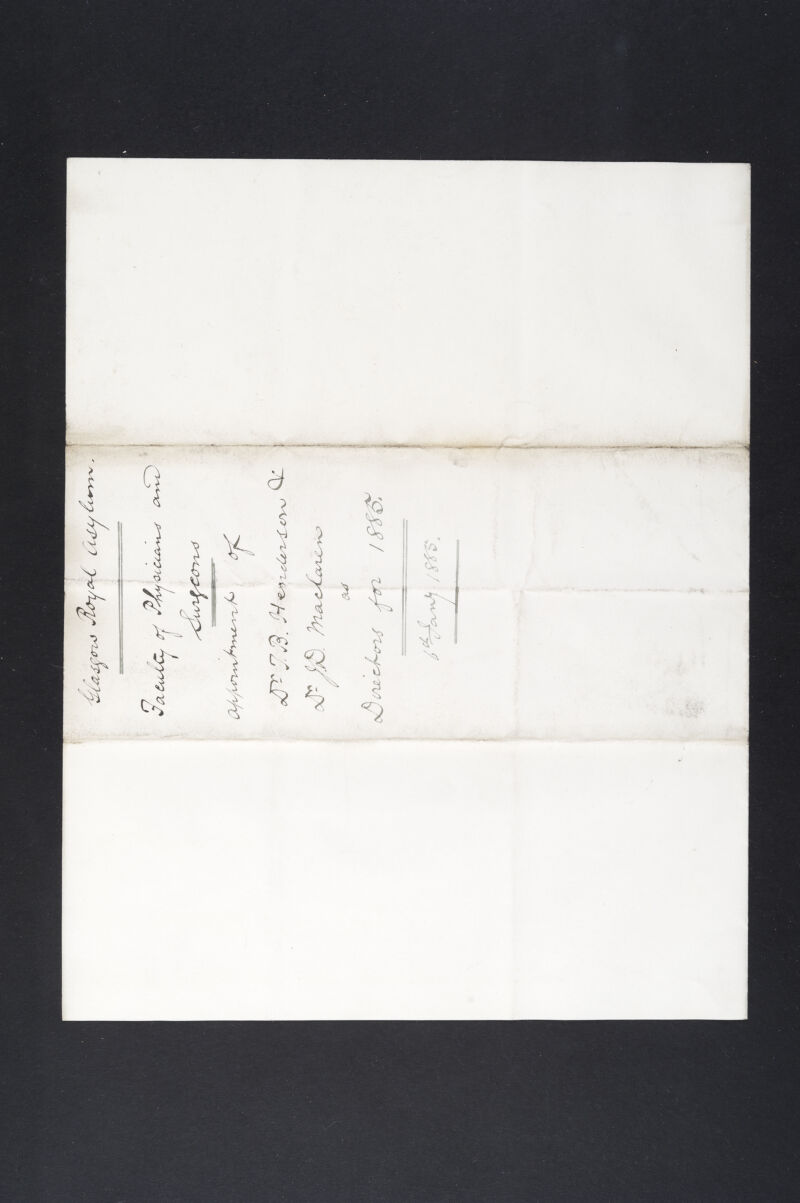 Glasgow Royal Asylum.
Faculty of Physicians and
Surgeons
appointment of
Dr T. B. Henderson &
Dr J. D. Maclaren
as
Directors for 1885.
6th Jany 1885.